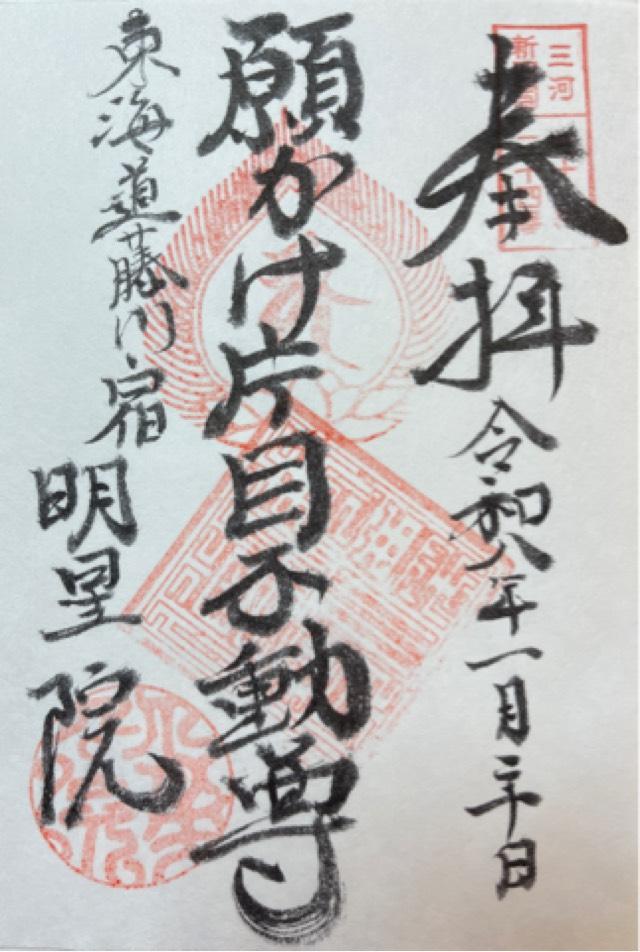 奉拝
令和八年一月二十日
願かけ片目不動尊
東海道藤川宿
明星院
三河
新